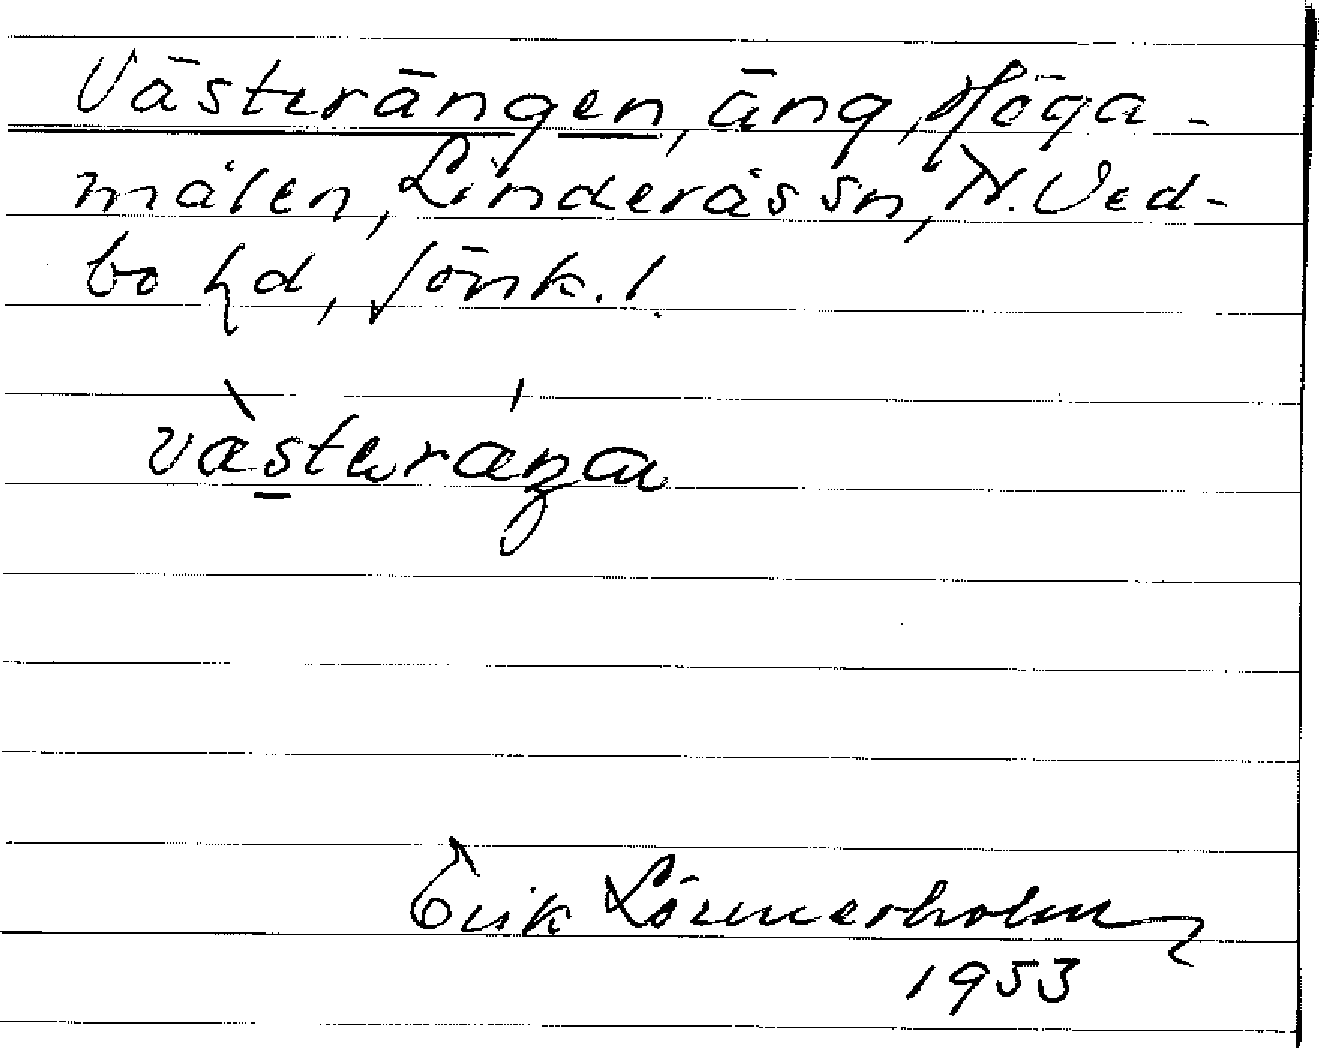 Västerängen, äng, Höga-
målen, Linderås sn, N. Ved-
bo hd, Jönk. l.
Erik Lönnerholm
1953